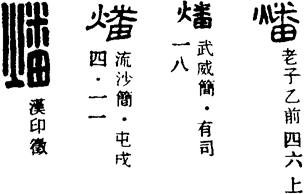 燔
老子乙前四六上
燔
武威簡·有司
一八
燔
流沙簡·屯戍
四·一一
燔
漢印徵